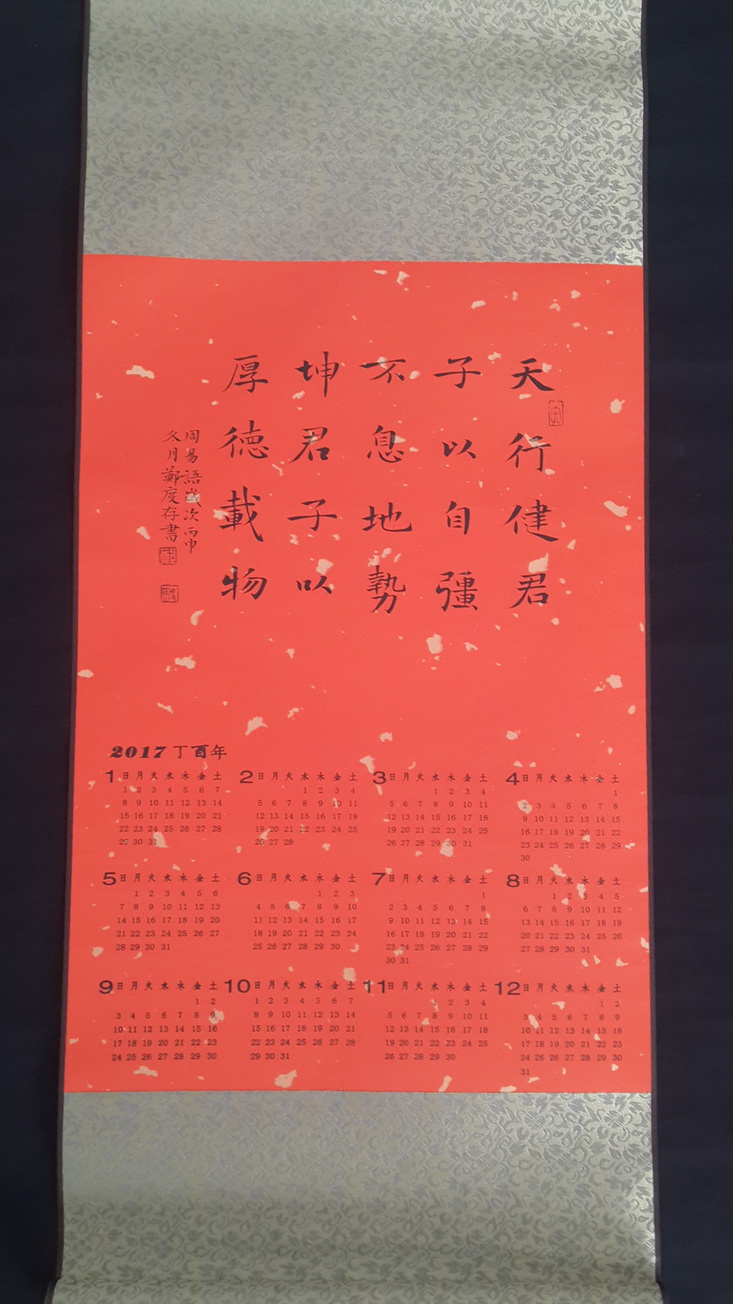 天行健君
子以自彊
不息地勢
坤君子以
厚德載物
周易語歲次丙申
久月鄭度存書
2017 丁酉年
1 日 月 火 水 木 金 土
1 2 3 4 5 6 7
8 9 10 11 12 13 14
15 16 17 18 19 20 21
22 23 24 25 26 27 28
29 30 31
2 日 月 火 水 木 金 土
1 2 3 4
5 6 7 8 9 10 11
12 13 14 15 16 17 18
19 20 21 22 23 24 25
26 27 28
3 日 月 火 水 木 金 土
1 2 3 4
5 6 7 8 9 10 11
12 13 14 15 16 17 18
19 20 21 22 23 24 25
26 27 28 29 30 31
4 日 月 火 水 木 金 土
1
2 3 4 5 6 7 8
9 10 11 12 13 14 15
16 17 18 19 20 21 22
23 24 25 26 27 28 29
30
5 日 月 火 水 木 金 土
1 2 3 4 5 6
7 8 9 10 11 12 13
14 15 16 17 18 19 20
21 22 23 24 25 26 27
28 29 30 31
6 日 月 火 水 木 金 土
1 2 3
4 5 6 7 8 9 10
11 12 13 14 15 16 17
18 19 20 21 22 23 24
25 26 27 28 29 30
7 日 月 火 水 木 金 土
1
2 3 4 5 6 7 8
9 10 11 12 13 14 15
16 17 18 19 20 21 22
23 24 25 26 27 28 29
30 31
8 日 月 火 水 木 金 土
1 2 3 4 5
6 7 8 9 10 11 12
13 14 15 16 17 18 19
20 21 22 23 24 25 26
27 28 29 30 31
9 日 月 火 水 木 金 土
1 2
3 4 5 6 7 8 9
10 11 12 13 14 15 16
17 18 19 20 21 22 23
24 25 26 27 28 29 30
10 日 月 火 水 木 金 土
1 2 3 4 5 6 7
8 9 10 11 12 13 14
15 16 17 18 19 20 21
22 23 24 25 26 27 28
29 30 31
11 日 月 火 水 木 金 土
1 2 3 4
5 6 7 8 9 10 11
12 13 14 15 16 17 18
19 20 21 22 23 24 25
26 27 28 29 30
12 日 月 火 水 木 金 土
1 2
3 4 5 6 7 8 9
10 11 12 13 14 15 16
17 18 19 20 21 22 23
24 25 26 27 28 29 30
31